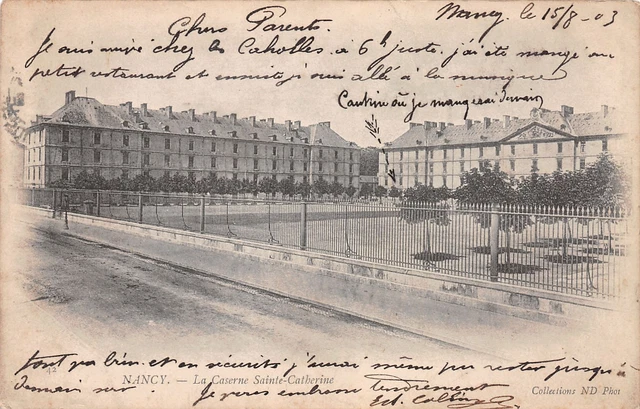 Nancy, le 15/8-03
Chers Parents.
Je suis arrivé chez les à 6h juste, j'ai été mangé au
petit restaurant et ensuite je suis allé à la musique
Cantine où je mangerai demain
tout par bien et en sécurité j'aurai même pu rester jusqu'à
demain soir. Je vous embrasse tendrement
Ed.
NANCY. — La Caserne Sainte-Catherine
Collections ND Phot